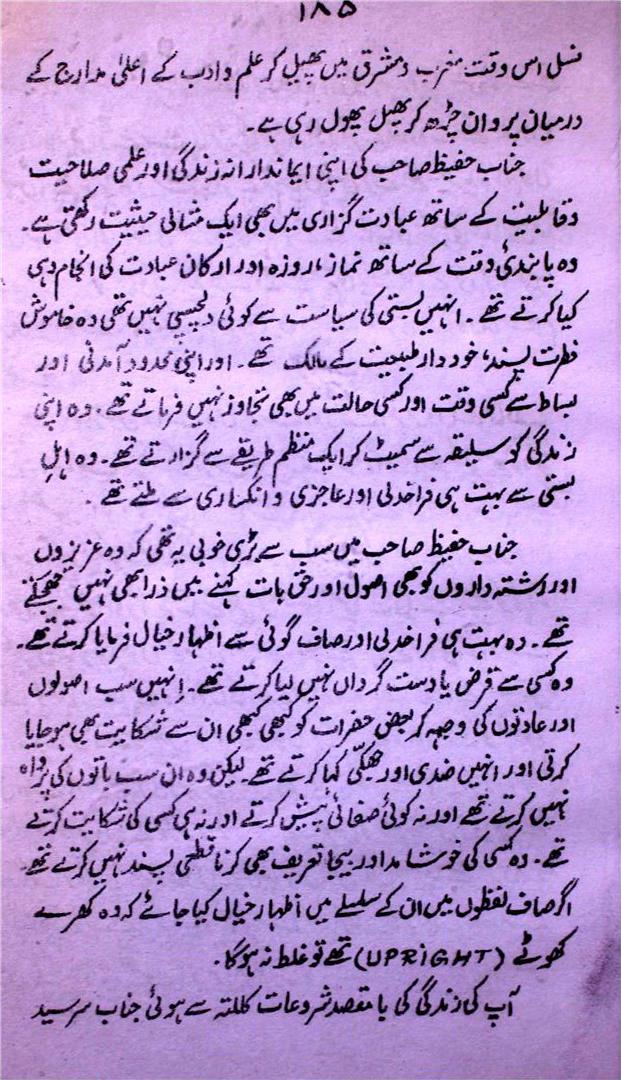 ۱۸۵
نسل اس وقت مغرب و مشرق میں پھیل کر علم و ادب کے اعلیٰ مدارج کے
درمیان پروان چڑھ کر پھل پھول رہی ہے۔
جناب حفیظ صاحب کی اپنی ایماندارانہ زندگی اور علمی صلاحیت
وقابلیت کے ساتھ عبادت گزاری میں بھی ایک مثالی حیثیت رکھتی ہے۔
وہ پابندئ وقت کے ساتھ نماز، روزہ اور ارکان عبادت کی انجام دہی
کیا کرتے تھے۔ انہیں بستی کی سیاست سے کوئی دلچسپی نہیں تھی وہ خاموش
فطرت پسند، خود دار طبیعت کے مالک تھے۔ اور اپنی محدود آمدنی اور
بساط سے کسی وقت اور کسی حالت میں بھی تجاوز نہیں فرماتے تھے۔ وہ اپنی
زندگی کو سلیقہ سے سمیٹ کر ایک منظم طریقے سے گزارتے تھے۔ وہ اہلِ
بستی سے بہت ہی فراخدلی اور عاجزی و انکساری سے ملتے تھے۔
جناب حفیظ صاحب میں سب سے بڑی خوبی یہ تھی کہ وہ عزیزوں
اور رشتہ داروں کو بھی اصول اور حق بات کہنے میں ذرا بھی نہیں جھجکتے
تھے۔ وہ بہت ہی فراخدلی اور صاف گوئی سے اظہار خیال فرمایا کرتے تھے۔
وہ کسی سے قرض یا دست گرداں نہیں لیا کرتے تھے۔ اِنہیں سب اصولوں
اور عادتوں کی وجہہ کر بعض حضرات کو کبھی کبھی ان سے شکایت بھی ہو جایا
کرتی اور انہیں ضدی اور جھکّی کہا کرتے تھے۔ لیکن وہ ان سب باتوں کی پرواہ
نہیں کرتے تھے اور نہ کوئی صفائی پیش کرتے اور نہ ہی کسی کی شکایت کرتے
تھے۔ وہ کسی کی خوشامد اور بیجا تعریف بھی کرنا قطعی پسند نہیں کرتے تھے۔
اگر صاف لفظوں میں ان کے سلسلے میں اظہار خیال کیا جائے کہ وہ کھرے
کھوٹے (UPRIGHT) تھے تو غلط نہ ہوگا۔
آپ کی زندگی کی با مقصد شروعات کلکتہ سے ہوئی جناب سرسید